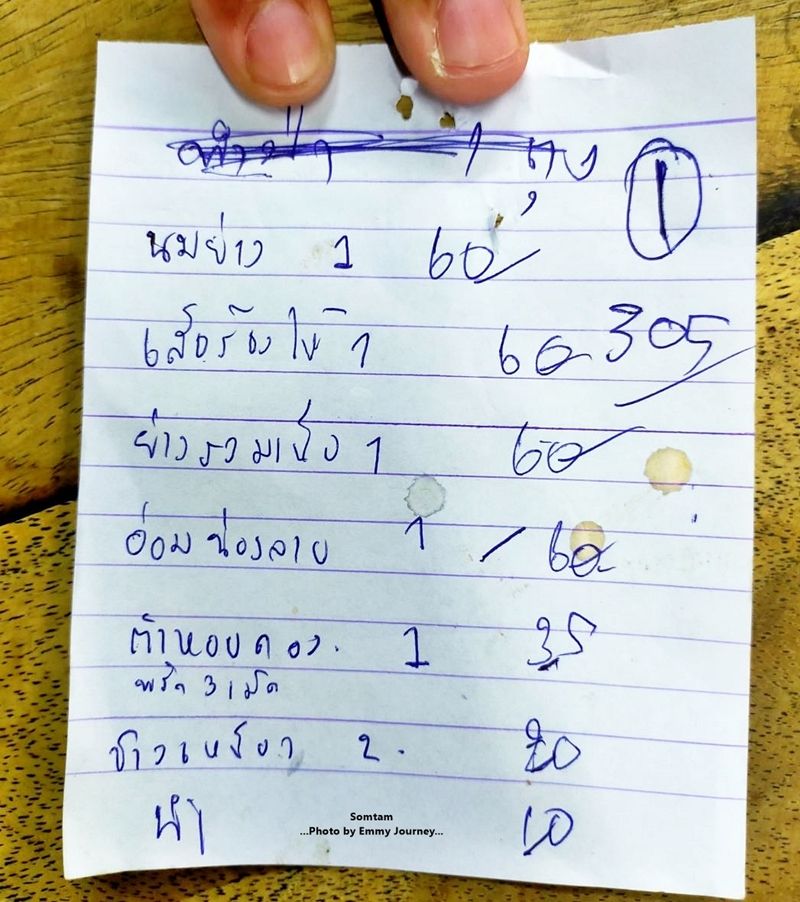 ตำป่า 1 ถุง
1
นมย่าง 1 60
เสือร้องไห้ 1 60 305
ย่างรวมเซ็ง 1 60
อ่อม น่องลาย 1 60
ตำหอยดอง. 1 35
พริก 3 เม็ด
ข้าวเหนียว 2. 20
น้ำ 10
Somtam
...Photo by Emmy Journey...